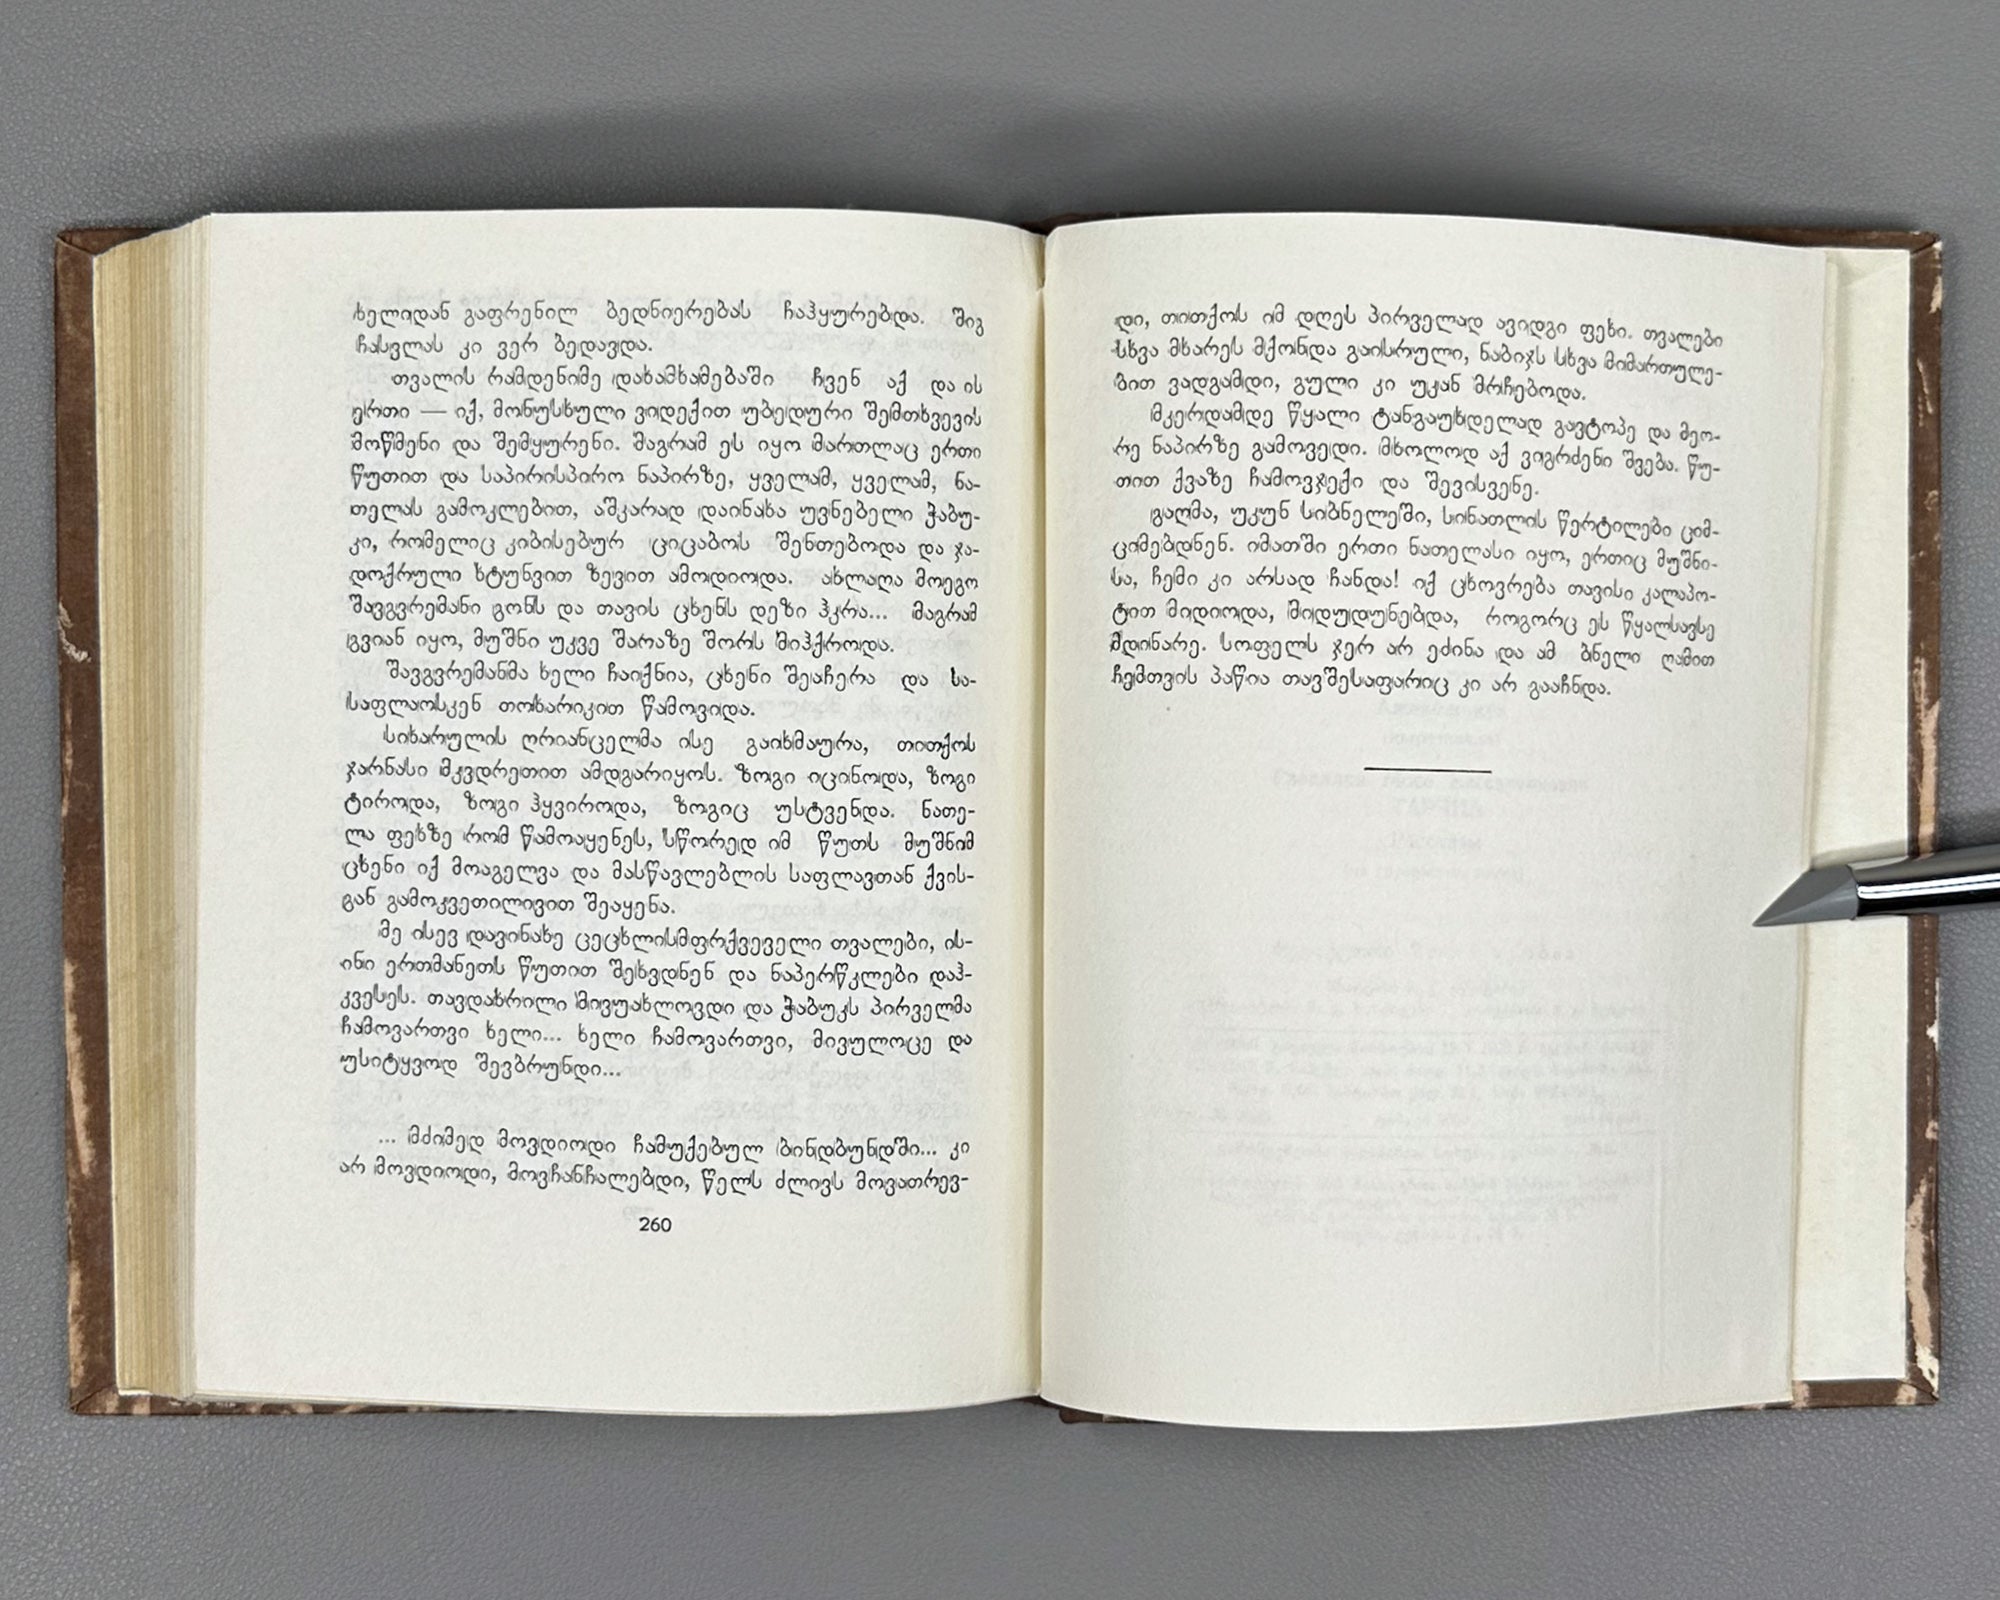 ხელიდან გაფრენილ ბედნიერებას ჩაჰყურებდა. შიგ
ჩასვლას კი ვერ ბედავდა.
თვალის რამდენიმე დახამხამებაში ჩვენ აქ და ის
ერთი — იქ, მონუსხული ვიდექით უბედური შემთხვევის
მოწმენი და შემყურენი. მაგრამ ეს იყო მართლაც ერთი
წუთით და საპირისპირო ნაპირზე, ყველამ, ყველამ, ნა-
თელას გამოკლებით, აშკარად დაინახა უვნებელი ჭაბუ-
კი, რომელიც კიბისებურ ციცაბოს შენთებოდა და ჯა-
დოქრული ხტუნვით ზევით ამოდიოდა. ახლაღა მოეგო
შავგვრემანი გონს და თავის ცხენს დეზი ჰკრა... მაგრამ
გვიან იყო, მუშნი უკვე შარაზე შორს მიჰქროდა.
შავგვრემანმა ხელი ჩაიქნია, ცხენი შეაჩერა და სა-
საფლაოსკენ თოხარიკით წამოვიდა.
სიხარულის ღრიანცელმა ისე გაიხმაურა, თითქოს
ჯარნასი მკვდრეთით ამდგარიყოს. ზოგი იცინოდა, ზოგი
ტიროდა, ზოგი ჰყვიროდა, ზოგიც უსტვენდა. ნათე-
ლა ფეხზე რომ წამოაყენეს, სწორედ იმ წუთს მუშნიმ
ცხენი იქ მოაგელვა და მასწავლებლის საფლავთან ქვის-
გან გამოკვეთილივით შეაყენა.
მე ისევ დავინახე ცეცხლისმფრქვეველი თვალები, ის-
ინი ერთმანეთს წუთით შეხვდნენ და ნაპერწკლები დაჰ-
კვესეს. თავდახრილი მივუახლოვდი და ჭაბუკს პირველმა
ჩამოვართვი ხელი... ხელი ჩამოვართვი, მივულოცე და
უსიტყვოდ შევბრუნდი...
... მძიმედ მოვდიოდი ჩამუქებულ ბინდბუნდში... კი
არ მოვდიოდი, მოვჩანჩალებდი, წელს ძლივს მოვათრევ-
260
დი, თითქოს იმ დღეს პირველად ავიდგი ფეხი. თვალები
სხვა მხარეს მქონდა გაისრული, ნაბიჯს სხვა მიმართულე-
ბით ვადგამდი, გული კი უკან მრჩებოდა.
მკერდამდე წყალი ტანგაუხდელად გავტოპე და მეო-
რე ნაპირზე გამოვედი. მხოლოდ აქ ვიგრძენი შვება. წუ-
თით ქვაზე ჩამოვჯექი და შევისვენე.
გაღმა, უკუნ სიბნელეში, სინათლის წერტილები ციმ-
ციმებდნენ. იმათში ერთი ნათელასი იყო, ერთიც მუშნი-
სა, ჩემი კი არსად ჩანდა! იქ ცხოვრება თავისი კალაპო-
ტით მიდიოდა, მიდუდუნებდა, როგორც ეს წყალსავსე
მდინარე. სოფელს ჯერ არ ეძინა და ამ ბნელი ღამით
ჩემთვის პაწია თავშესაფარიც კი არ გააჩნდა.